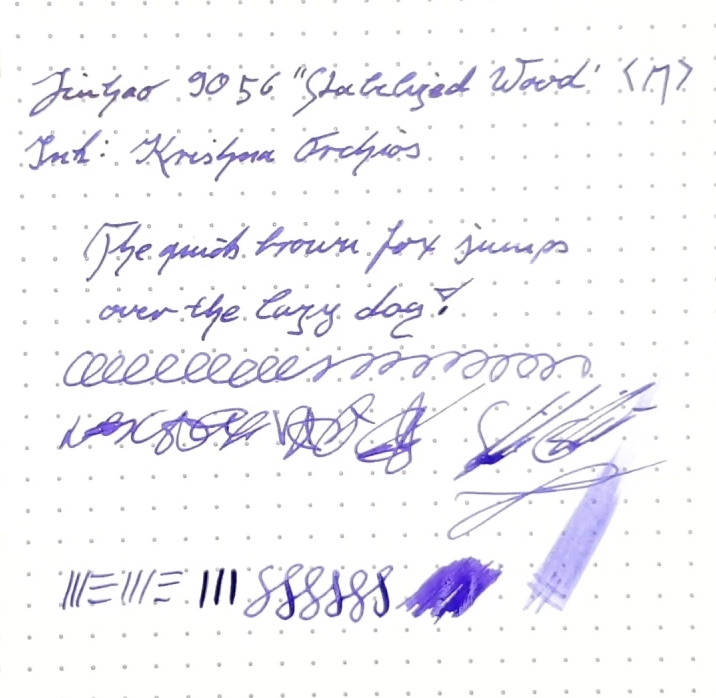 Jinhao 9056 "Stabilized Wood" <M>
Ink: Krishna Orchios
The quick brown fox jumps
over the lazy dog!